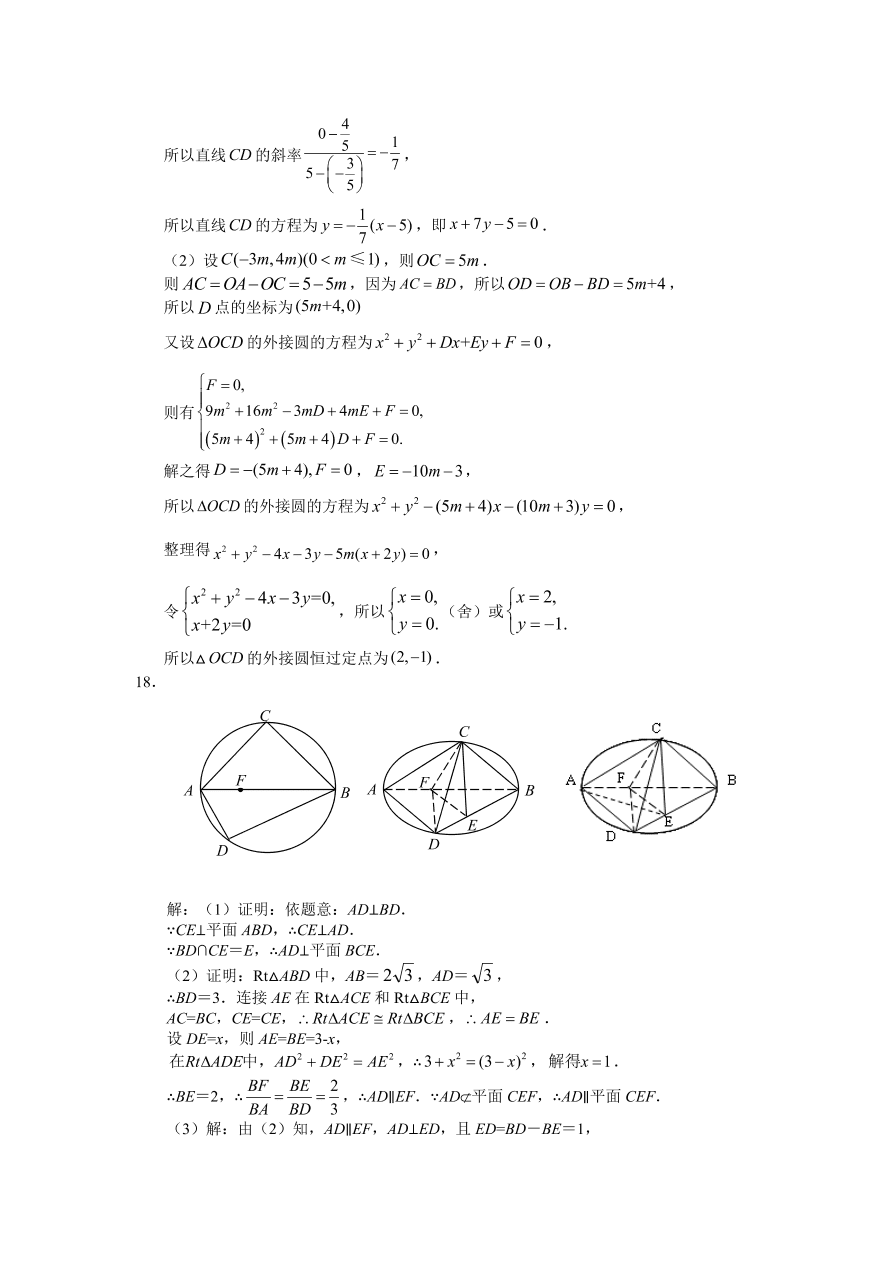 所以直线 CD 的斜率 \frac{0-\frac{4}{5}}{5-\left(-\frac{3}{5}\right)}=-\frac{1}{7}，
所以直线 CD 的方程为 y=-\frac{1}{7}(x-5)，即 x+7y-5=0．
（2）设 C(-3m,4m)(0<m≤1)，则 OC=5m．
则 AC=OA-OC=5-5m，因为 AC=BD，所以 OD=OB-BD=5m+4，
所以 D 点的坐标为 (5m+4,0)
又设 ΔOCD 的外接圆的方程为 x²+y²+Dx+Ey+F=0，
则有 { F=0,
9m²+16m²-3mD+4mE+F=0,
(5m+4)²+(5m+4)D+F=0.
解之得 D=-(5m+4),F=0，E=-10m-3，
所以 ΔOCD 的外接圆的方程为 x²+y²-(5m+4)x-(10m+3)y=0，
整理得 x²+y²-4x-3y-5m(x+2y)=0，
令 { x²+y²-4x-3y=0, x+2y=0，所以 { x=0, y=0. （舍）或 { x=2, y=-1.
所以△OCD 的外接圆恒过定点为 (2,-1)．
18．
C
A
F
B
D
C
A
F
B
E
D
C
A
F
B
E
D
解：（1）证明：依题意：AD⊥BD．
∵CE⊥平面 ABD，∴CE⊥AD．
∵BD∩CE＝E，∴AD⊥平面 BCE．
（2）证明：Rt△ABD 中，AB＝2√3，AD＝√3，
∴BD＝3．连接 AE 在 Rt△ACE 和 Rt△BCE 中，
AC=BC，CE=CE，∴RtΔACE≅RtΔBCE，∴AE=BE．
设 DE=x，则 AE=BE=3-x，
在RtΔADE中，AD²+DE²=AE²，∴3+x²=(3-x)²，解得x=1．
∴BE＝2，∴\frac{BF}{BA}=\frac{BE}{BD}=\frac{2}{3}，∴AD∥EF．∵AD⊄平面 CEF，∴AD∥平面 CEF．
（3）解：由（2）知，AD∥EF，AD⊥ED，且 ED=BD－BE＝1，